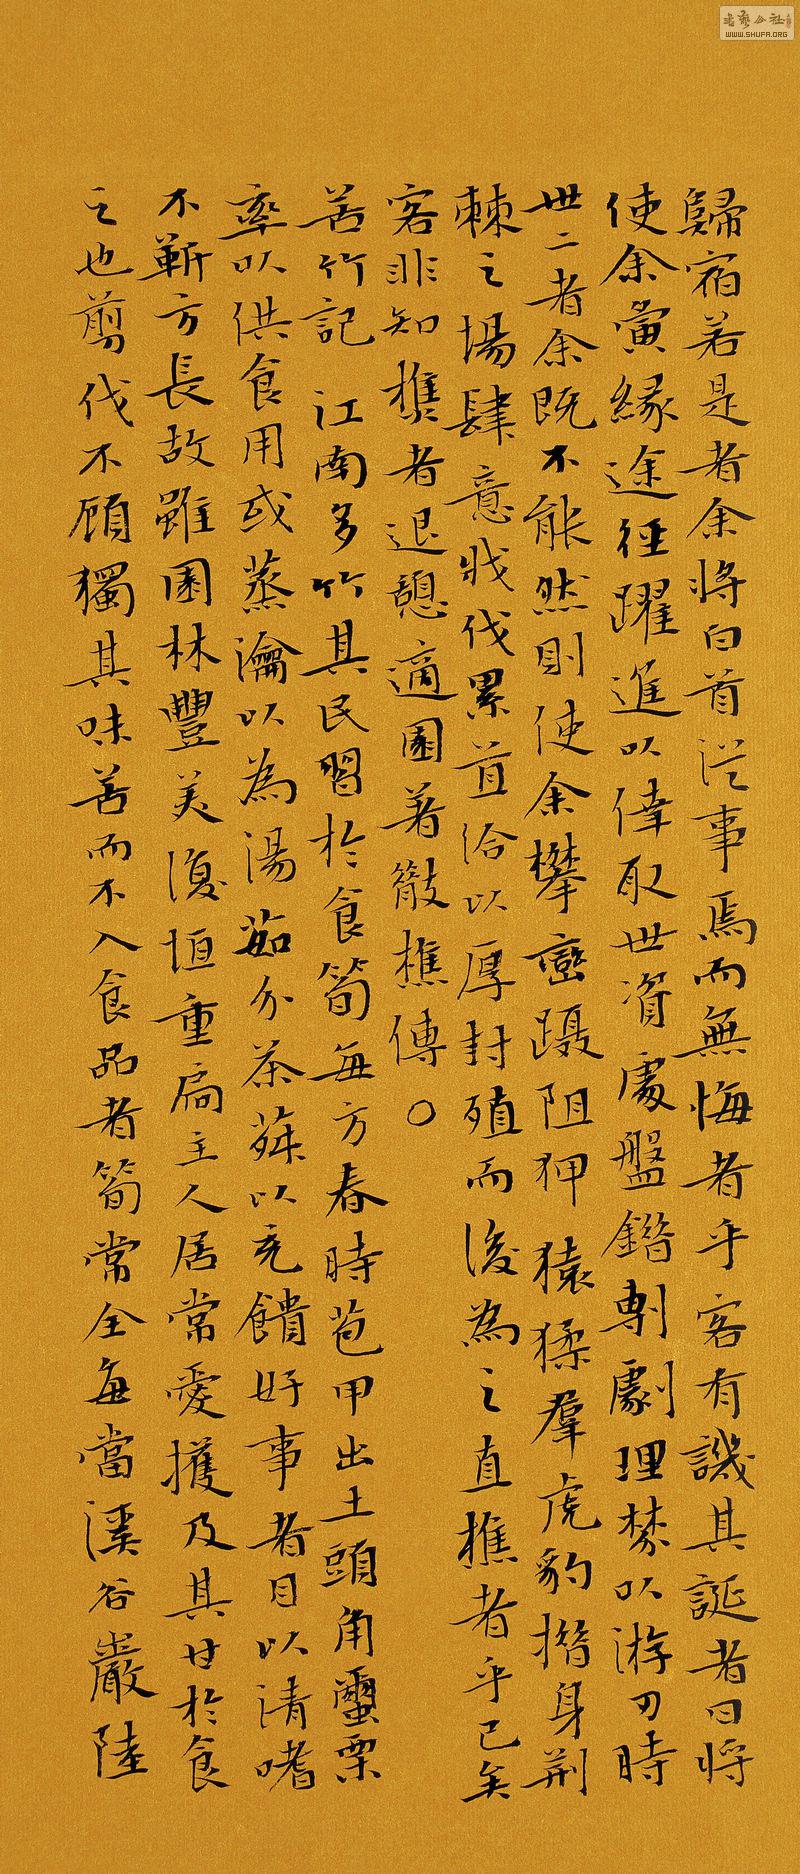 歸宿若是者余將白首從事焉而無悔者乎客有譏其誕者曰將
使余夤緣途徑躍進以倖取世資處盤錯剸劇理棼以游刃時
世二者余既不能然則使余攀巒蹑阻狎猿猱羣虎豹搢身荆
棘之場肆意戕伐累苴洽以厚封殖而後為之直樵者乎已矣
客非知樵者退憩適園著散樵傳○
苦竹記 江南多竹其民習於食筍每方春時苞甲出土頭角蠒栗
率以供食用或蒸瀹以為湯茹介茶荈以充饋好事者目以清嗜
不靳方長故雖園林豐美復垣重扃主人居常愛護及其甘於食
之也剪伐不顧獨其味苦而不入食品者筍常全每當溪谷巖陸
WWW.SHUFA.ORG